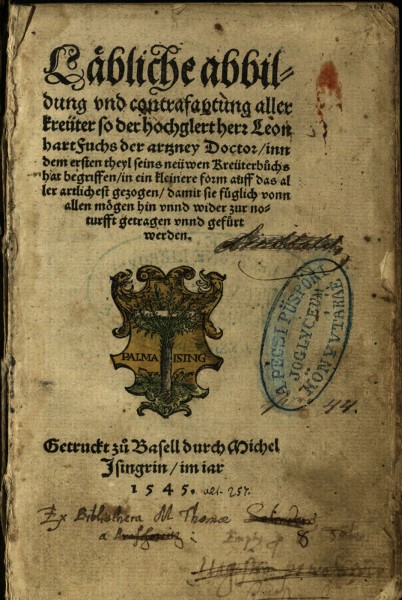 Läbliche abbil-
dung vnd contrafaytung aller
kreüter so der hochglert herr Leon
hart Fuchs der artzney Doctor / inn
dem ersten theyl seins neüwen Kreüterbůchs
hat begriffen / in ein kleinere form auff das al
ler artlichest gezogen / damit sie füglich vonn
allen mögen hin vnnd wider zur no-
turfft getragen vnnd gefürt
werden.
PALMA ISING
A PÉCSI PÜSPÖKI
JOGLYCEUM
KÖNYVTÁRÁÉ
44.
Getruckt zů Basell durch Michel
Isingrin / im iar
1545.
Ex Bibliotheca M Thomæ
a